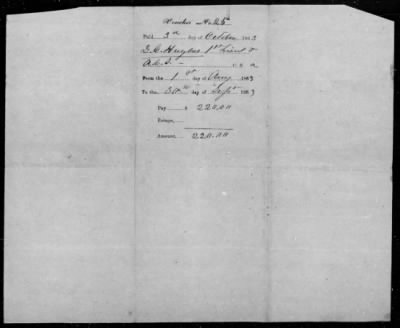 Voucher No. 25
Paid 3d day of October 1863
Hughes 1st Lieut &
From the 1st day of Aug 1863
To the 30th day of Sept 1863
Pay $ 220.00
Forage,
Amount, 220.00